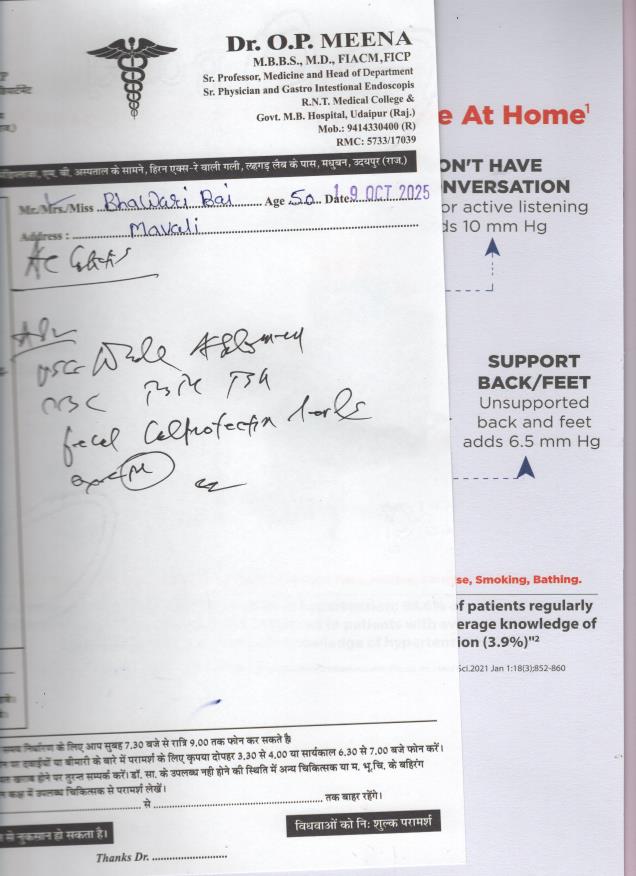 Dr. O.P. MEENA
M.B.B.S., M.D., FIACM,FICP
Sr. Professor, Medicine and Head of Department
Sr. Physician and Gastro Intestional Endoscopis
R.N.T. Medical College &
Govt. M.B. Hospital, Udaipur (Raj.)
Mob.: 9414330400 (R)
RMC: 5733/17039
एम. बी. अस्पताल के सामने, हिरन एक्स-रे वाली गली, लहगड़ लैब के पास, मधुबन, उदयपुर (राज.)
Mr./Mrs./Miss Bhawari Bai Age 50 Date 19 OCT 2025
Address : Mavali
Adv
USG Whole Abdomen
CBC TSH
fecal Calprotectin levels
e At Home1
ON'T HAVE
NVERSATION
or active listening
ds 10 mm Hg
SUPPORT
BACK/FEET
Unsupported
back and feet
adds 6.5 mm Hg
se, Smoking, Bathing.
of patients regularly
erage knowledge of
ion (3.9%)"2
Sci.2021 Jan 1:18(3);852-860
समय निर्धारण के लिए आप सुबह 7.30 बजे से रात्रि 9.00 तक फोन कर सकते है
न पर दवाईयों या बीमारी के बारे में परामर्श के लिए कृपया दोपहर 3.30 से 4.00 या सायंकाल 6.30 से 7.00 बजे फोन करें।
खराब होने पर तुरन्त सम्पर्क करें। डॉ. सा. के उपलब्ध नही होने की स्थिति में अन्य चिकित्सक या म. भू.चि. के बहिरंग
कक्ष में उपलब्ध चिकित्सक से परामर्श लेखें।
से तक बाहर रहेंगे।
से नुकसान हो सकता है।
विधवाओं को नि: शुल्क परामर्श
Thanks Dr.